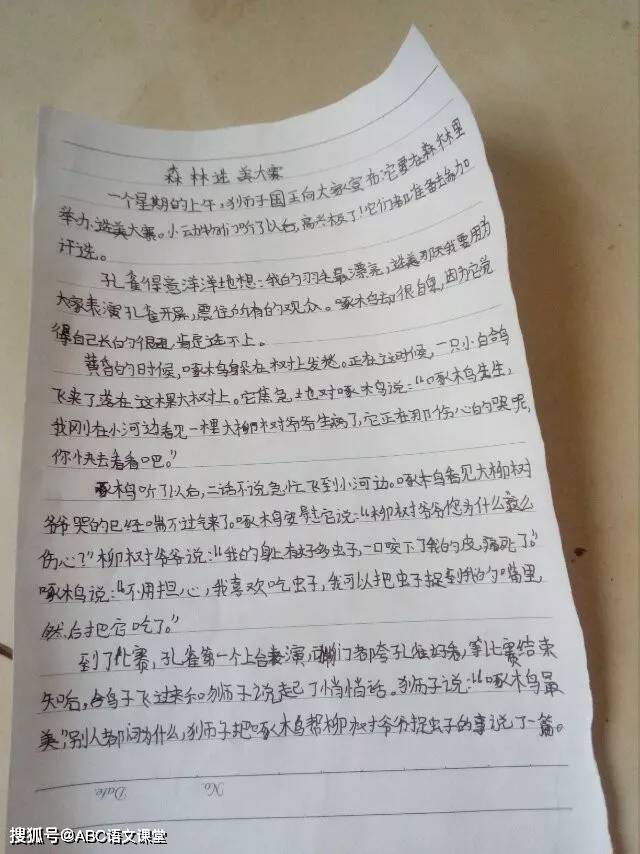 森林选美大赛
一个星期的上午,狮子国王向大家宣布说要在森林里
举办选美大赛。小动物们听了以后,高兴极了!它们都准备去参加
评选。
孔雀得意洋洋地想:我的羽毛最漂亮,选美那天我要用为
大家表演孔雀开屏,票住所有的观众。啄木鸟却很自卑,因为它觉
得自己长的很丑,肯定选不上。
黄昏的时候,啄木鸟躲在树上发愁。正在这时候,一只小白鸽
飞来了落在这棵大树上。它焦急地对啄木鸟说:“啄木鸟先生,
我刚在小河边看见一棵大柳树爷爷生病了,它正在那伤心的哭呢,
你快去看看吧。”
啄木鸟听了以后,二话不说急忙飞到小河边。啄木鸟看见大柳树
爷爷哭的已经喘不过气来了。啄木鸟安慰它说:“柳树爷爷您为什么这么
伤心?”柳树爷爷说:“我的身上有好多虫子,一口咬下了我的皮,痛死了。”
啄木鸟说:“不用担心,我喜欢吃虫子,我可以把虫子捉到我的嘴里,
然后把它吃了。”
到了比赛,孔雀第一个上台表演,们都夸孔雀好看,等比赛结束
知后,白鸽子飞过来和狮子说起了悄悄话。狮子说:“啄木鸟最
美”,别人都问为什么,狮子把啄木鸟帮柳树爷爷捉虫子的事说了一篇。
No.
Date
搜狐号@ABC语文课堂